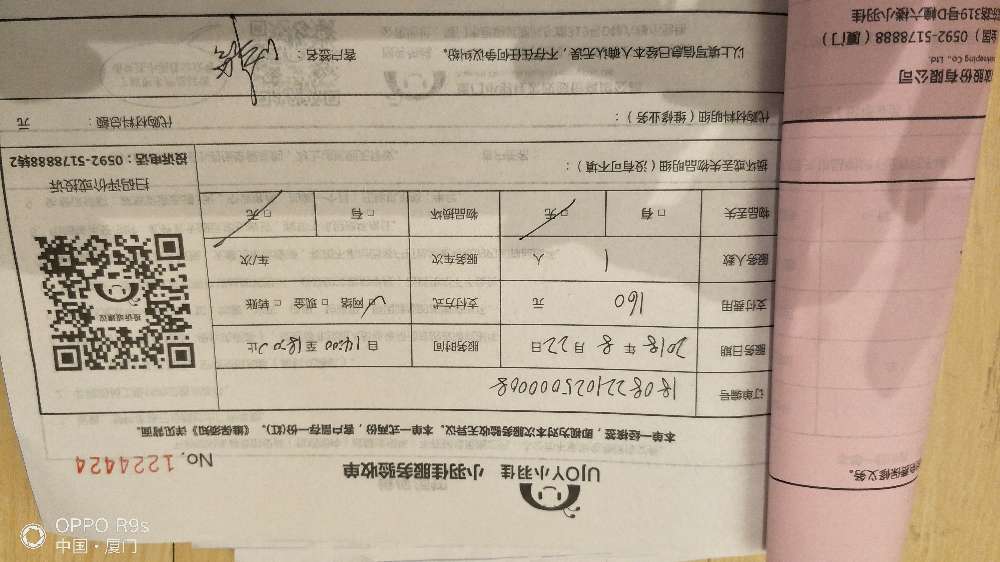 UJOY小羽佳 小羽佳服务验收单
No. 1224424
本单一单一签，经接签，即视为对本次服务验收无异议。本单一式两份，客户留存一份(红)。《维保须知》详见背面。
订单编号 180822102500008
服务日期 2018 年 8 月 22 日 服务时间 日 14:00 至 18:20 止
支付费用 160 元 支付方式 ☑ 网络 □ 现金 □ 转账
服务人数 1 人 服务车次 车/次
物品丢失 □ 有 ☑ 无 物品损坏 □ 有 ☑ 无
损坏或丢失物品明细（没有可不填）：
代购材料明细（维修业务）： 代购材料总额： 元
以上填写信息已经本人确认无误，不存在任何争议纠纷。 客户签名：
投诉或建议
扫码评价或投诉
投诉电话：0592-5178888转2
股份有限公司
Housekeeping Co., Ltd.
0592-5178888（厦门）
路319号D幢六楼小羽佳
免费保修义务。
OPPO R9s
中国·厦门